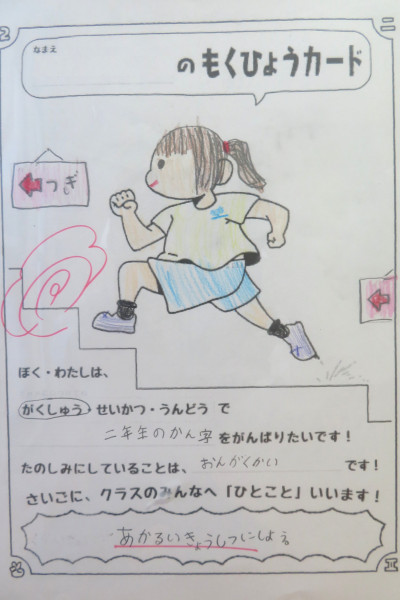 なまえ
のもくひょうカード
つぎ
ぼく・わたしは、
がくしゅう・せいかつ・うんどう で
二年生のかん字をがんばりたいです！
たのしみにしていることは、おんがくかいです！
さいごに、クラスのみんなへ「ひとこと」いいます！
あかるいきょうしつにしよう